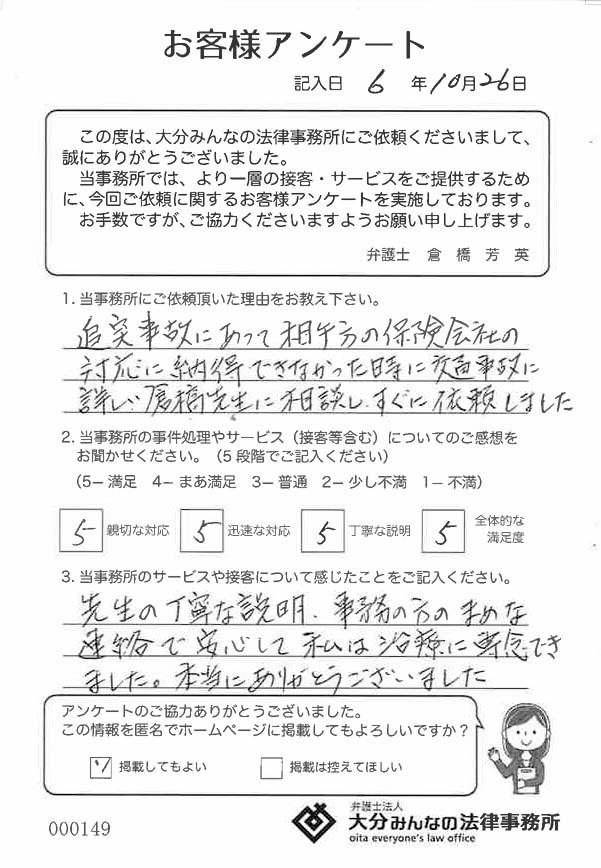 お客様アンケート
記入日 6 年10月26日
この度は、大分みんなの法律事務所にご依頼くださいまして、
誠にありがとうございました。
当事務所では、より一層の接客・サービスをご提供するため
に、今回ご依頼に関するお客様アンケートを実施しております。
お手数ですが、ご協力くださいますようお願い申し上げます。
弁護士 倉橋芳英
1. 当事務所にご依頼頂いた理由をお教え下さい。
追突事故にあって相手方の保険会社の
対応に納得できなかった時に交通事故に
詳しい倉橋先生に相談し、すぐに依頼しました
2. 当事務所の事件処理やサービス（接客等含む）についてのご感想を
お聞かせください。（5 段階でご記入ください）
（5− 満足 4− まあ満足 3− 普通 2− 少し不満 1− 不満）
5 親切な対応 5 迅速な対応 5 丁寧な説明 5 全体的な
満足度
3. 当事務所のサービスや接客について感じたことをご記入ください。
先生の丁寧な説明、事務の方のまめな
連絡で安心して私は治療に専念でき
ました。本当にありがとうございました
アンケートのご協力ありがとうございました。
この情報を匿名でホームページに掲載してもよろしいですか？
掲載してもよい 掲載は控えてほしい
000149
弁護士法人
大分みんなの法律事務所
oita everyone's law office